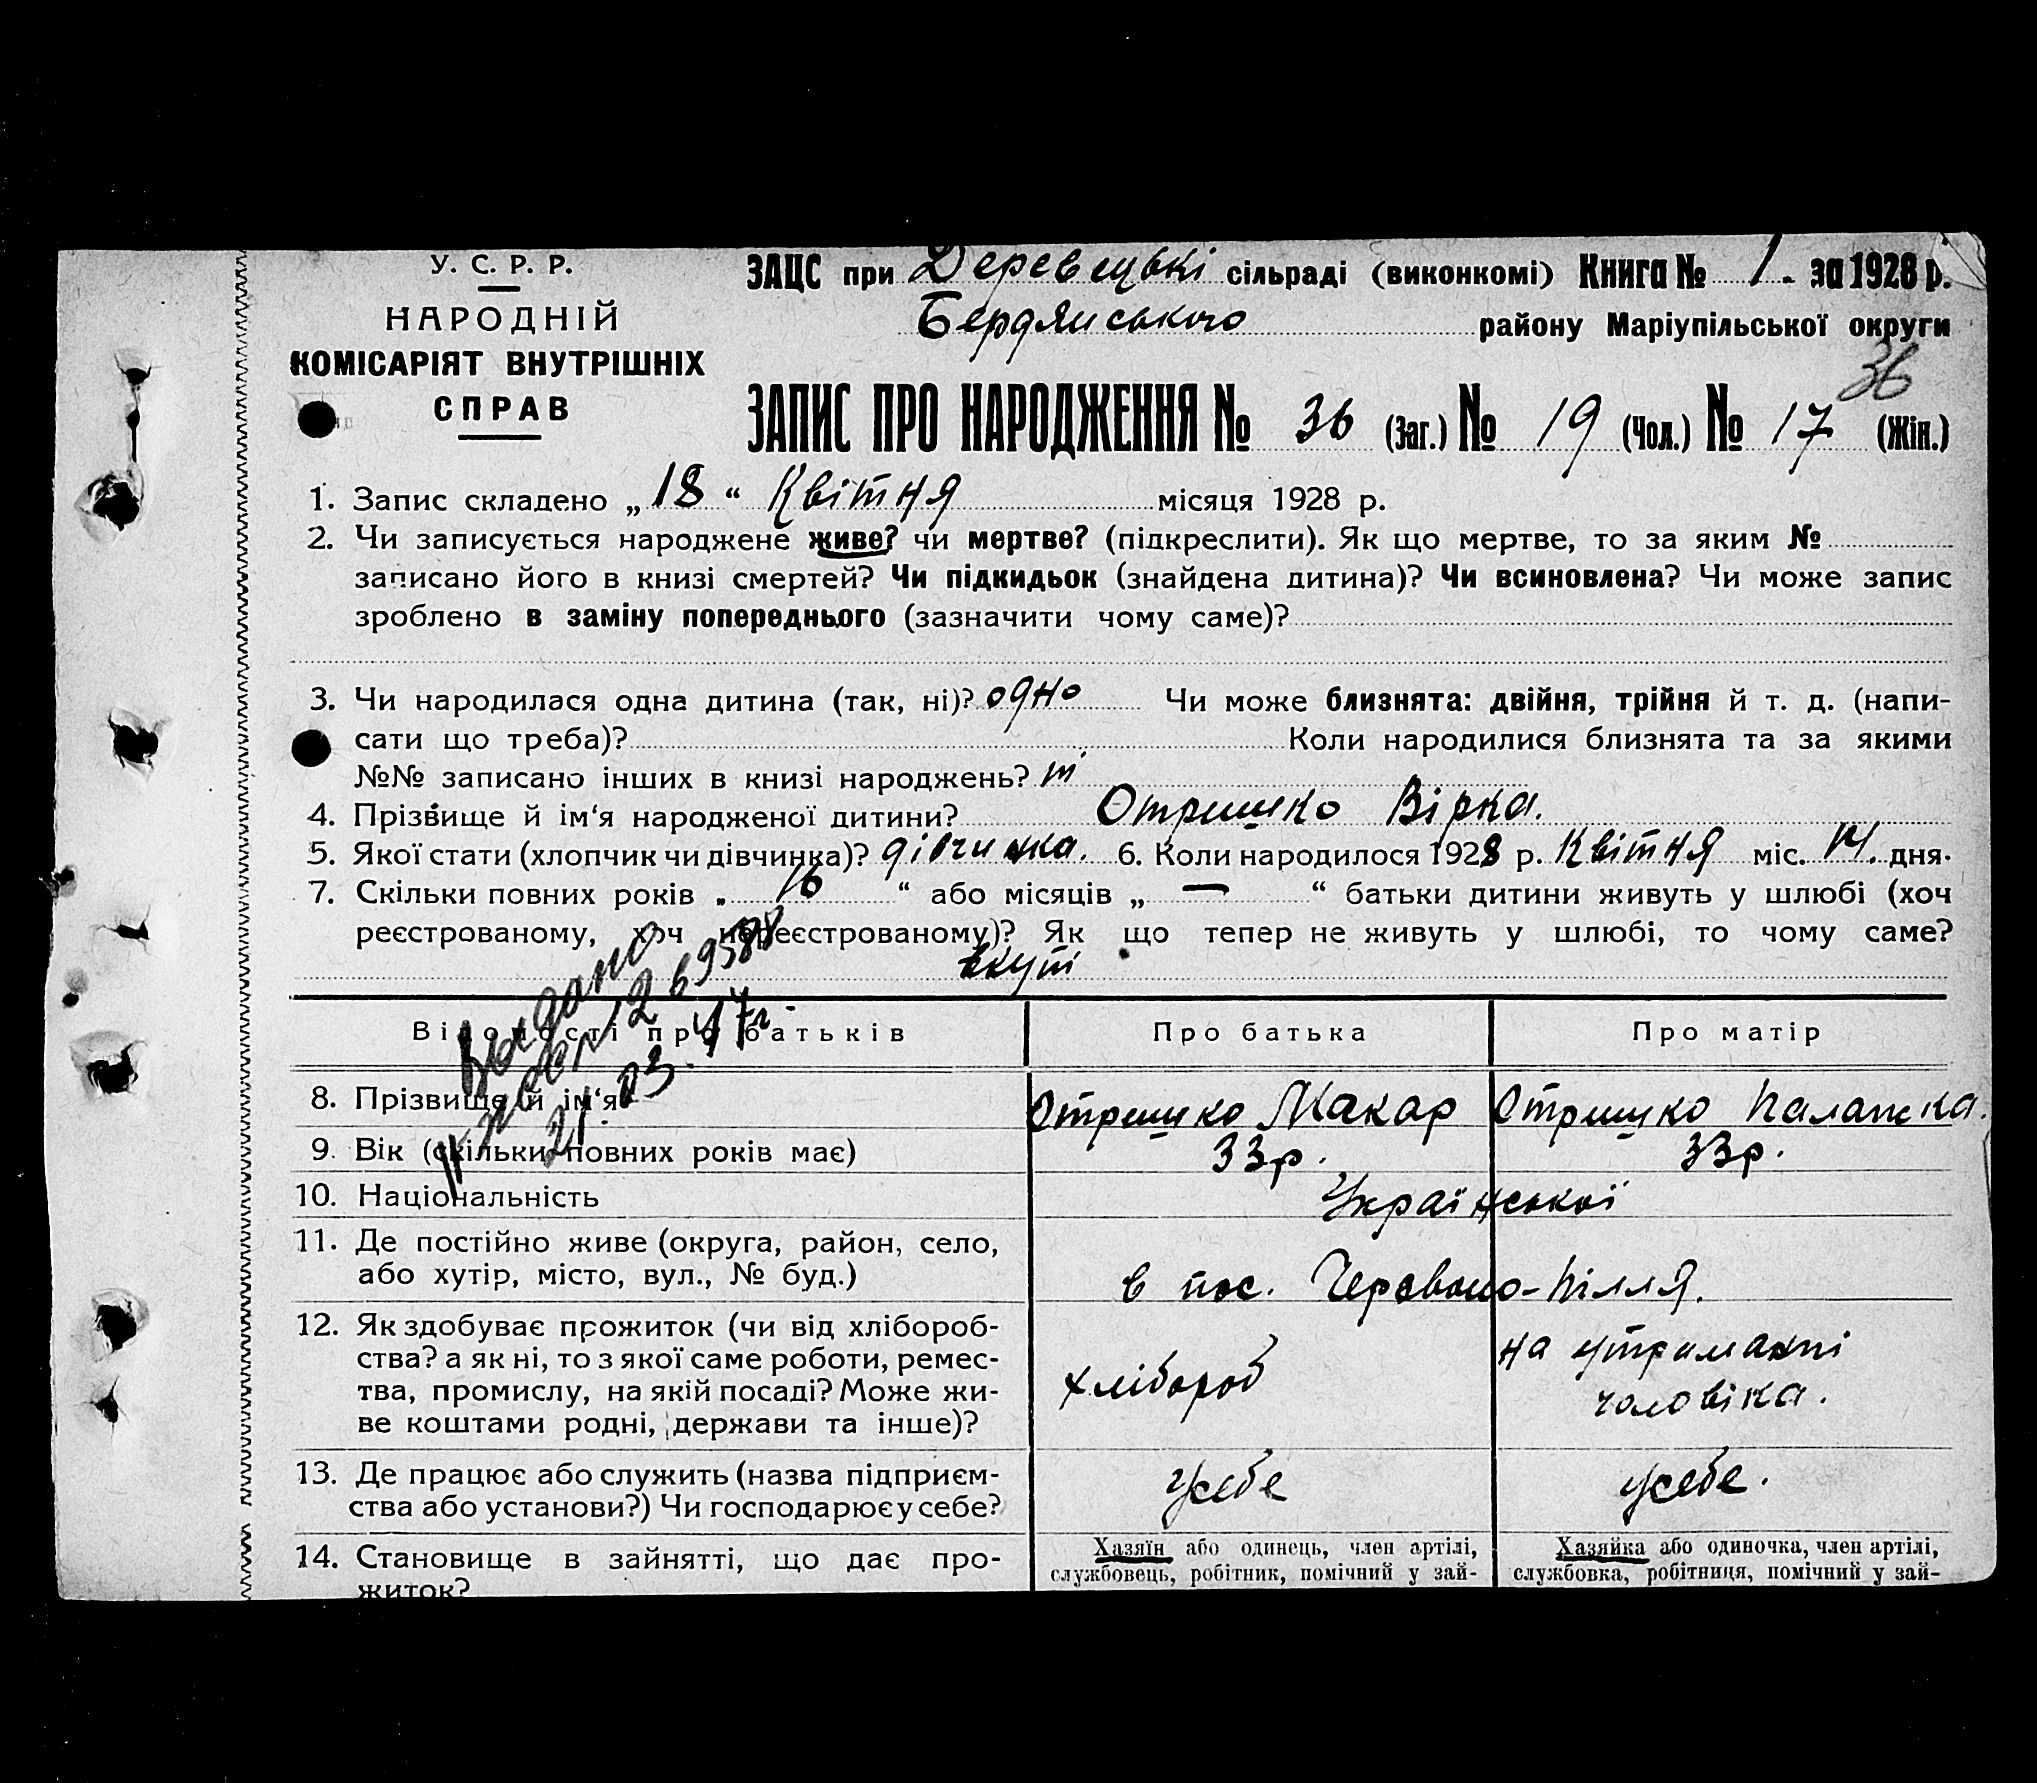 У. С. Р. Р.
НАРОДНІЙ
КОМІСАРІЯТ ВНУТРІШНІХ
СПРАВ
ЗАЦС при Деревецькі сільраді (виконкомі) Книга № 1. за 1928 р.
Бердянського району Маріупільської округи
36
ЗАПИС ПРО НАРОДЖЕННЯ № 36 (Заг.) № 19 (Чол.) № 17 (Жін.)
1. Запис складено „18“ Квітня місяця 1928 р.
2. Чи записується народжене живе? чи мертве? (підкреслити). Як що мертве, то за яким №
записано його в книзі смертей? Чи підкидьок (знайдена дитина)? Чи всиновлена? Чи може запис
зроблено в заміну попереднього (зазначити чому саме)?
3. Чи народилася одна дитина (так, ні)? одно Чи може близнята: двійня, трійня й т. д. (напи-
сати що треба)? Коли народилися близнята та за якими
№№ записано інших в книзі народжень?
4. Прізвище й ім‘я народженої дитини? Отришко Вірка.
5. Якої стати (хлопчик чи дівчинка)? дівчинка. 6. Коли народилося 1928 р. Квітня міс. 14. дня.
7. Скільки повних років „ 16 “ або місяців „ — “ батьки дитини живуть у шлюбі (хоч
реєстрованому, хоч нереєстрованому)? Як що тепер не живуть у шлюбі, то чому саме?
вкупі
Відомості про батьків Про батька Про матір
Выдано
21.03.47г.
8. Прізвище й ім‘я Отришко Макар Отришко Палажка.
9. Вік (скільки повних років має) 33р. 33р.
10. Національність Української
11. Де постійно живе (округа, район, село,
або хутір, місто, вул., № буд.) в пос. Червоно-Пілля.
12. Як здобуває прожиток (чи від хлібороб-
ства? а як ні, то з якої саме роботи, ремес-
тва, промислу, на якій посаді? Може жи-
ве коштами родні, держави та інше)?
хлібороб
на утриманні
чоловіка.
13. Де працює або служить (назва підприєм-
ства або установи?) Чи господарює у себе?
у себе
у себе.
14. Становище в зайнятті, що дає про-
житок?
Хазяїн або одинець, член артілі,
службовець, робітник, помічний у зай-
Хазяйка або одиночка, член артілі,
службовка, робітниця, помічний у зай-